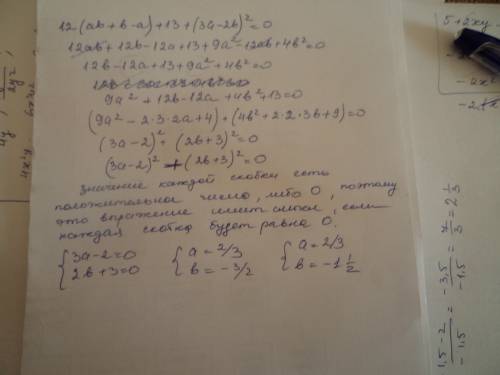 12(ab+b-a)+13+(3a-2b)²=0
12ab+12b-12a+13+9a²-12ab+4b²=0
12b-12a+13+9a²+4b²=0
9a²+12b-12a+4b²+13=0
(9a²-2·3·2a+4)+(4b²+2·2·3b+9)=0
(3a-2)²+(2b+3)²=0
(3a-2)²+(2b+3)²=0
Значение каждой скобки есть
положительное число, либо 0, поэтому
это выражение имеет смысл, если
каждая скобка будет равна 0.
{3a-2=0 {a=2/3 {a=2/3
{2b+3=0 {b=-3/2 {b=-1 1/2
5+2xy-
1,5-2/-1,5 = -3,5/-1,5 = 7/3 = 2 1/3